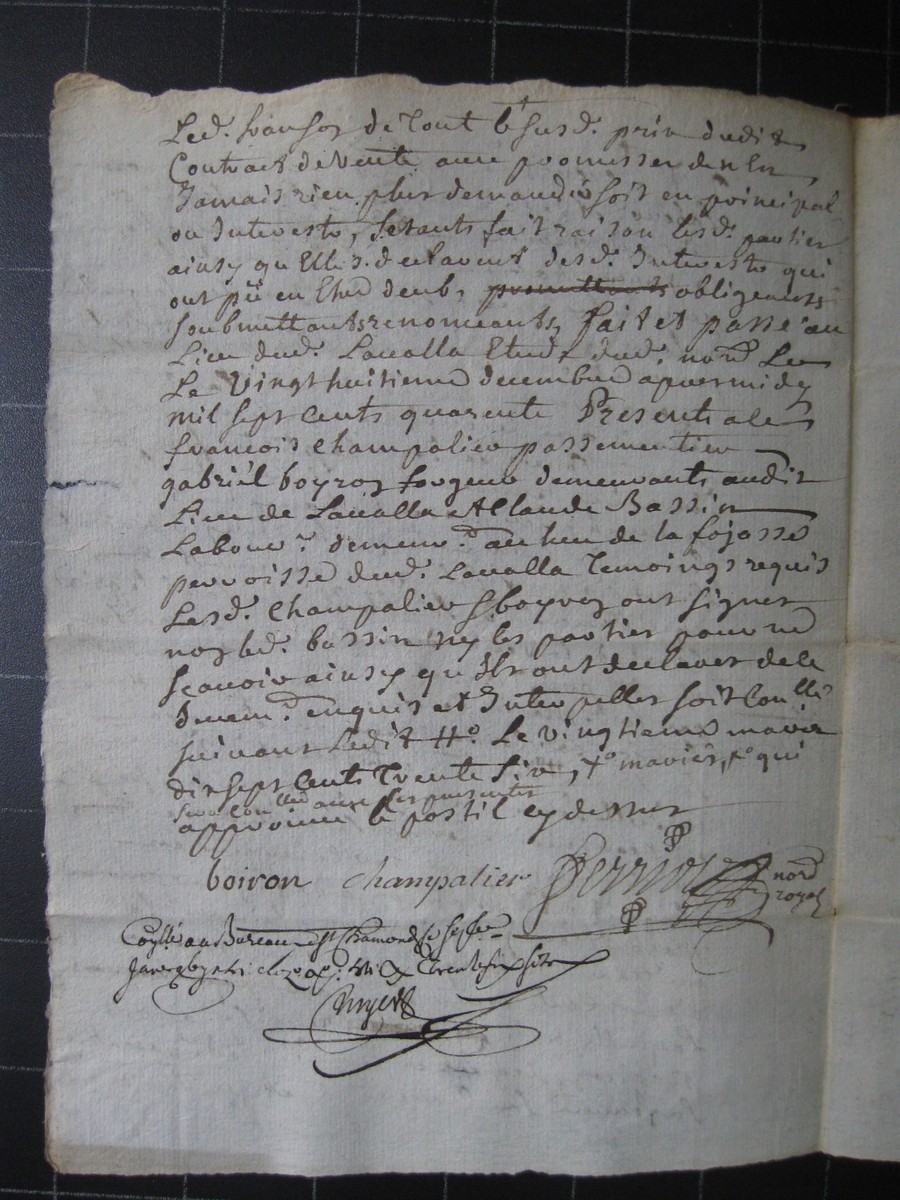 Led. fransoy de Tout le susd. prix dudit
Contract de vente avec promesse de n En
Jamais rien plus demander soit en principal
ou Interests, setants fait raison lesd. parties
ainsy qu Elles declarent desd. Interests qui
ont pû en Etre deubs promettants obligeants
soubmettants renonceants, fait et passé au
Lieu dud. Lavalla Etude dud. nore Le
Le vingt huitieme decembre apres midy
mil sept cents quarente Presents a les
francois champalier passementier
gabriel boyron forgeur demeurants audit
Lieu de Lavalla et Claude Bassin
Labour. demeur. au lieu de la fojasse
parroisse dud. Lavalla Temoings requis
Lesd. Champalier & boyron ont signer
non led. bassin ny les parties pour ne
scavoir ainsy qu ils ont declarer de ce
deuem. enquis et Interpeller soit Con.llé
suivant Ledit Ho. Le vingtieme
dix sept Cents Trente six, qui
sera Con.llee avec Les presentes
approuvé le postil cy dessus
boiron champalier Perriol nore
royal
au Bureau St Chamond
Janvier trente six